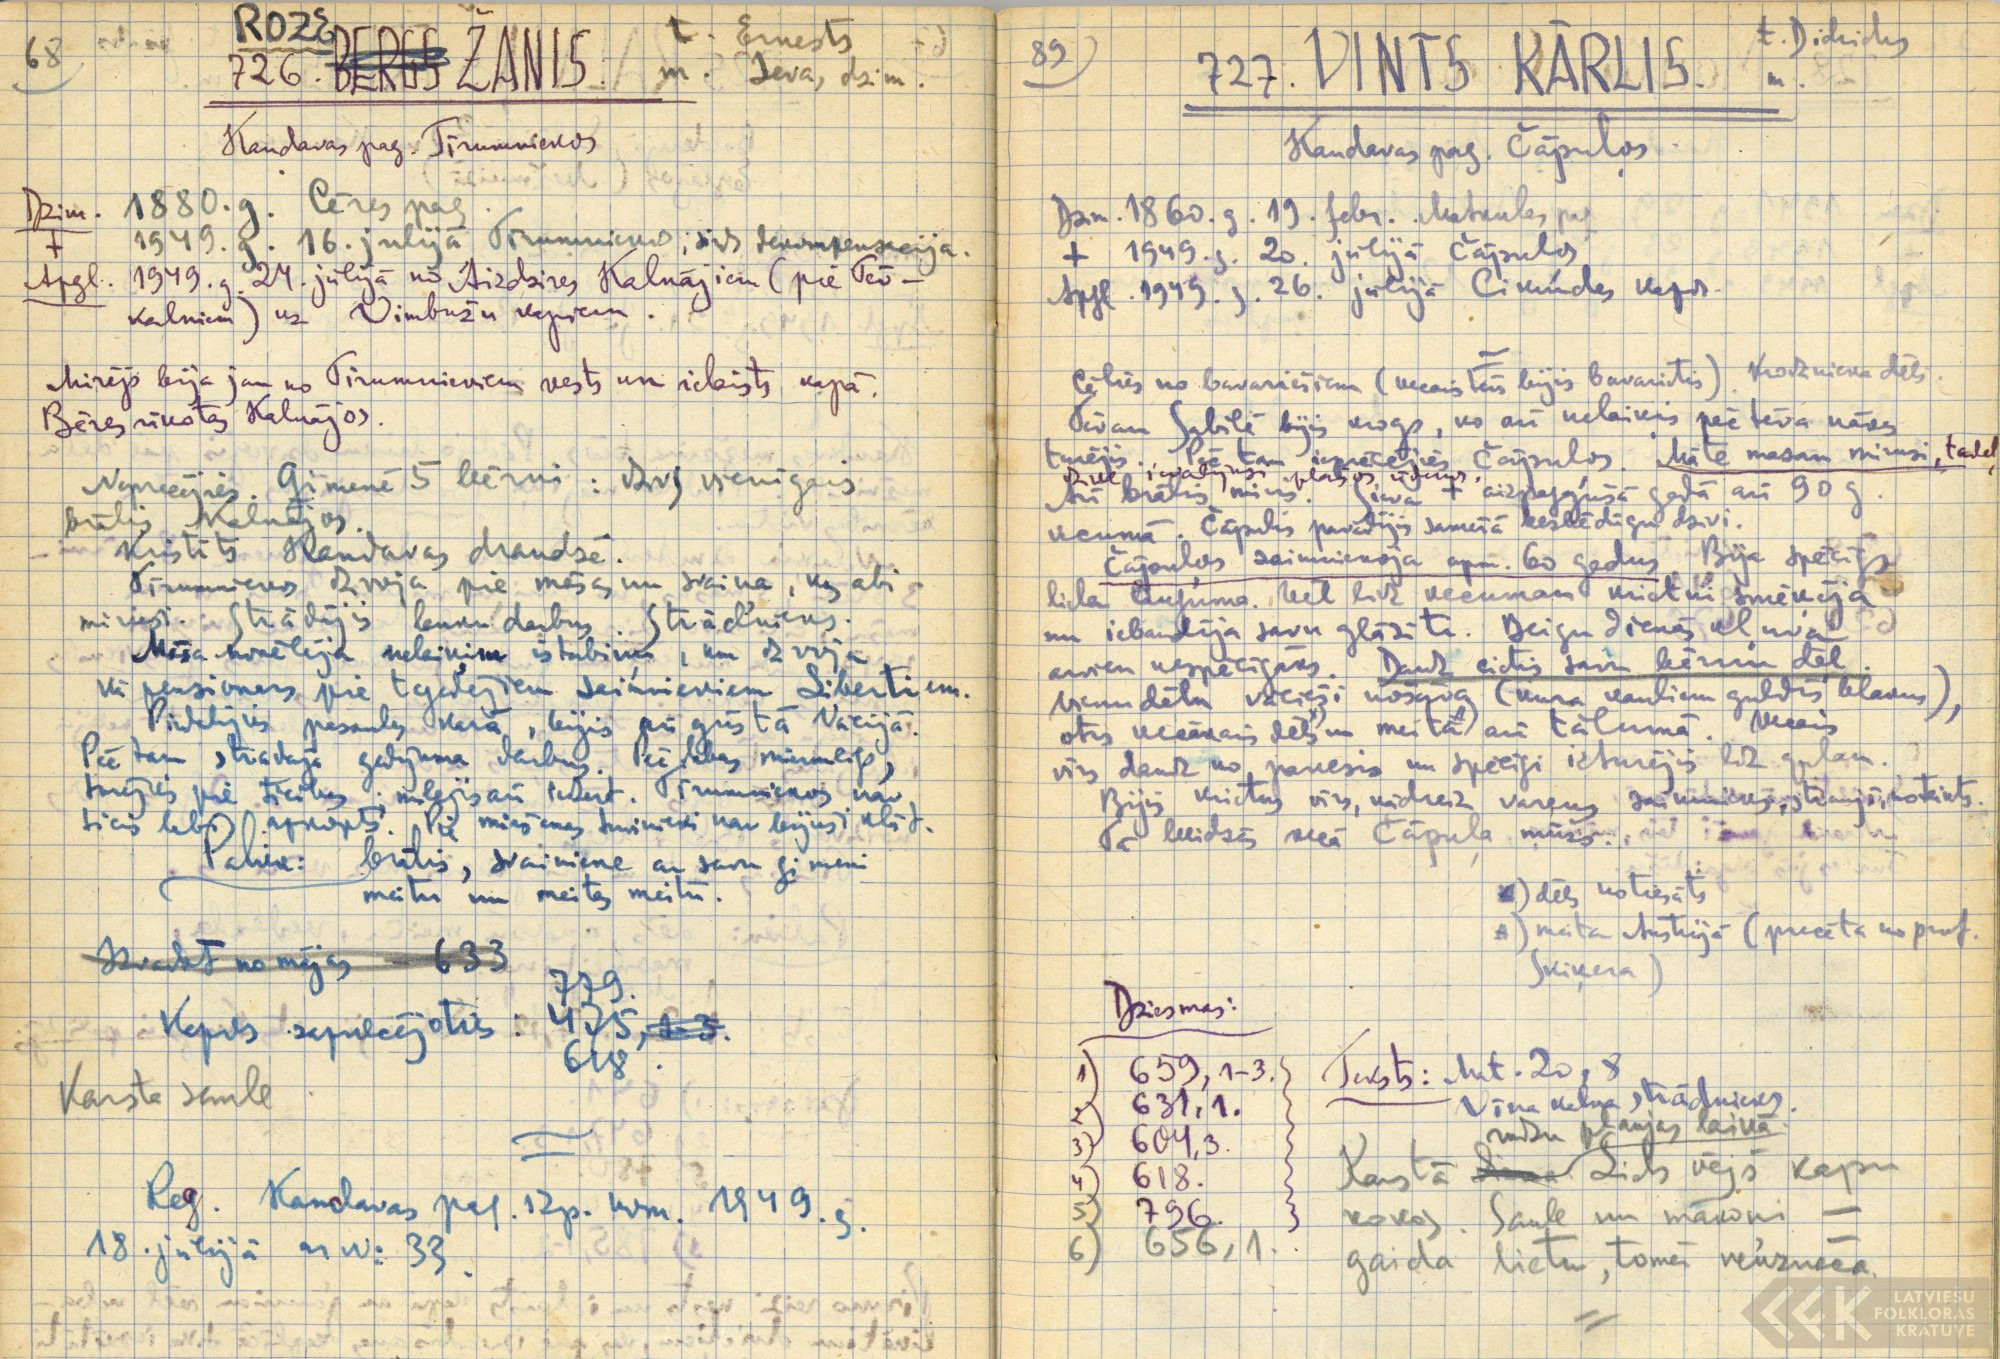 68
ROZE
726. BERGS ŽANIS.
t. Ernests
m. Ieva, dzim.
Kandavas pag. Tīrumniekos
Dzim. 1880. g. Cēres pag.
+ 1949. g. 16. jūlijā Tīrumniekos, sirds dekompensacija.
Apgl. 1949. g. 24. jūlijā no Aizdzires Kalnājiem (pie Teō-
kalniem) uz Vimbužu kapiem.
Mirējs bija jau no Tīrumniekiem vests un ielaists kapā.
Bēres rīkotas Kalnājos.
Neprecējies. Ģimenē 5 bērni: dzīvs vienīgais
brālis Kalnājos.
Kristīts Kandavas draudzē.
Tīrumniekos dzīvoja pie māsas un svaiņa, kas abi
miruši. Strādājis lauku darbus. Strādnieks.
Māsa novēlēja nelaiķim istabiņu, kur dzīvoja
kā pensionārs pie tagadējiem saimniekiem Libertiem.
Piedalījies pasaules karā, bijis arī gūstā Vācijā.
Pēc tam strādāja gadījuma darbus.
turējies pie ticības, mīlējis arī iedzert. Tīrumniekos nav
ticis labi apkopts. Pie miršanas tuvinieki nav bijuši klāt.
Paliek: brālis, svainiene ar savu ģimeni
meitu un meitas meitu.
Izvadot no mājas - 633
779.
Kapos sapulcējoties: 475, 1-3.
618.
Karsta saule
Reg. Kandavas pag. izp. kom. 1949. g.
18. jūlijā ar № 33.
89
727. VINTS KĀRLIS.
t. Didrichs
m.
Kandavas pag. Čāpuļos
Dzim. 1860. g. 19. febr. Matkules pag
+ 1949. g. 20. jūlijā Čāpulos
Apgl. 1949. g. 26. jūlijā Cikūndes kapos.
Cēlies no bavariešiem (vecaistēvs bijis bavarietis). Krodzinieka dēls.
Tēvam Sabilē bijis krogs, ko arī nelaiķis pēc tēva nāves
turējis. Pēc tam ieprecējies Čāpuļos. Māte masam mirusi, tādēļ
Arī brālis miris. Sieva + aizpagājušā gadā arī 90 g.
vecumā. Čāpulis pavadījis samērā bezbēdīgu dzīvi.
Čāpuļos saimniekoja apm. 60 gadus. Bija spēcīgs
liela auguma. Vēl līdz vecumam krietni smēķēja
un iebaudīja savu glāzīti. Beigu dienās kļuva
arvien nespēcīgāks. Daudz cietis savu bērnu dēļ.
Vienu dēlu vācieši nošāva (kura kauliem guldīs blakus),
otrs vecākais dēls un meita arī tālumā. Vecais
vīrs daudz ko panesis un spēcīgi izturējis līdz galam.
Bijis krietns vīrs, kādreiz varens saimnieks, stingrs, noteikts.
Tā beidzās vecā Čāpuļa mūžs.
x) dēls notiesāts
x) meita Austrijā (precēta no prof.
Dziesmas:
1) 659, 1-3.
2) 631, 1.
3) 604, 3.
4) 618.
5) 796.
6) 656, 1.
Teksts: Mt. 20, 8
Vīna kalna strādnieks.
rudzu pļaujas laikā.
Karstā Liels vējš kapu
kokos. Saule un mākoņi —
gaida lietu, tomēr neuznāca.
LATVIEŠU
FOLKLORAS
KRĀTUVE